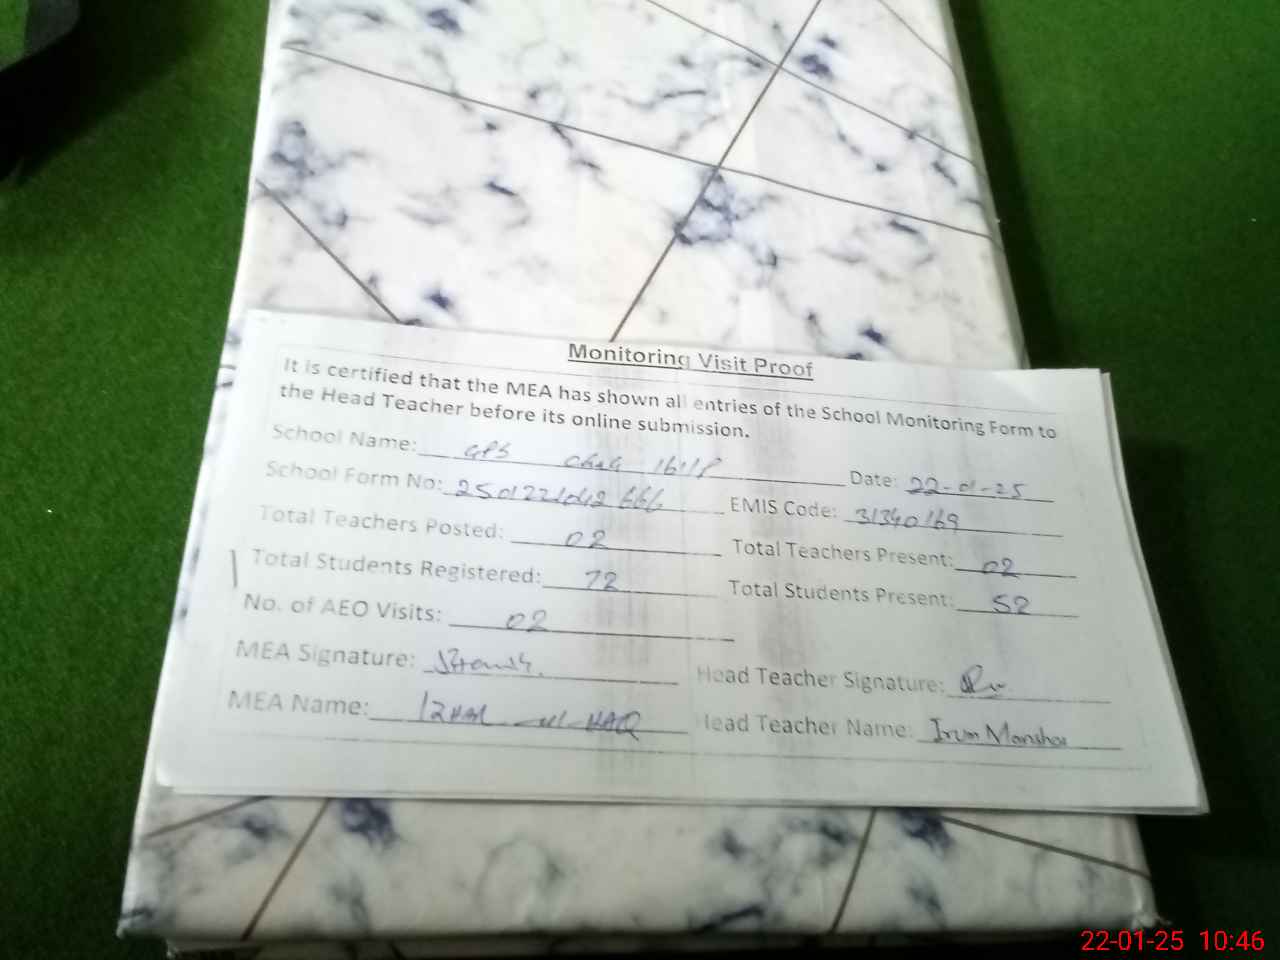 Monitoring Visit Proof
It is certified that the MEA has shown all entries of the School Monitoring Form to
the Head Teacher before its online submission.
School Name: GPS Chak 161/P Date: 22-01-25
School Form No: EMIS Code: 31340169
Total Teachers Posted: 02 Total Teachers Present: 02
Total Students Registered: 72 Total Students Present: 52
No. of AEO Visits: 02
MEA Signature: Head Teacher Signature:
MEA Name: Head Teacher Name: Irum
22-01-25 10:46